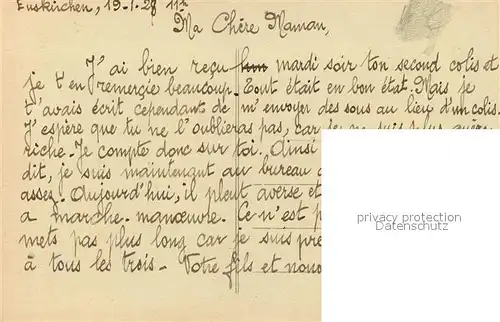 Euskirchen, 19-1-28 11h
Ma Chère Maman,
J'ai bien reçu mardi soir ton second colis et
je t'en remercie beaucoup. Tout était en bon état. Mais je
t'avais écrit cependant de m'envoyer des sous au lieu d'un colis.
J'espère que tu ne l'oublieras pas, car je ne suis plus guère
riche. Je compte donc sur toi. Ainsi
dit, je suis maintenant au bureau
asses. Aujourd'hui, il pleut averse et
a marche-manœuvre. Ce n'est p
mets pas plus long car je suis pre
à tous les trois. Votre fils et nous
privacy protection
Datenschutz